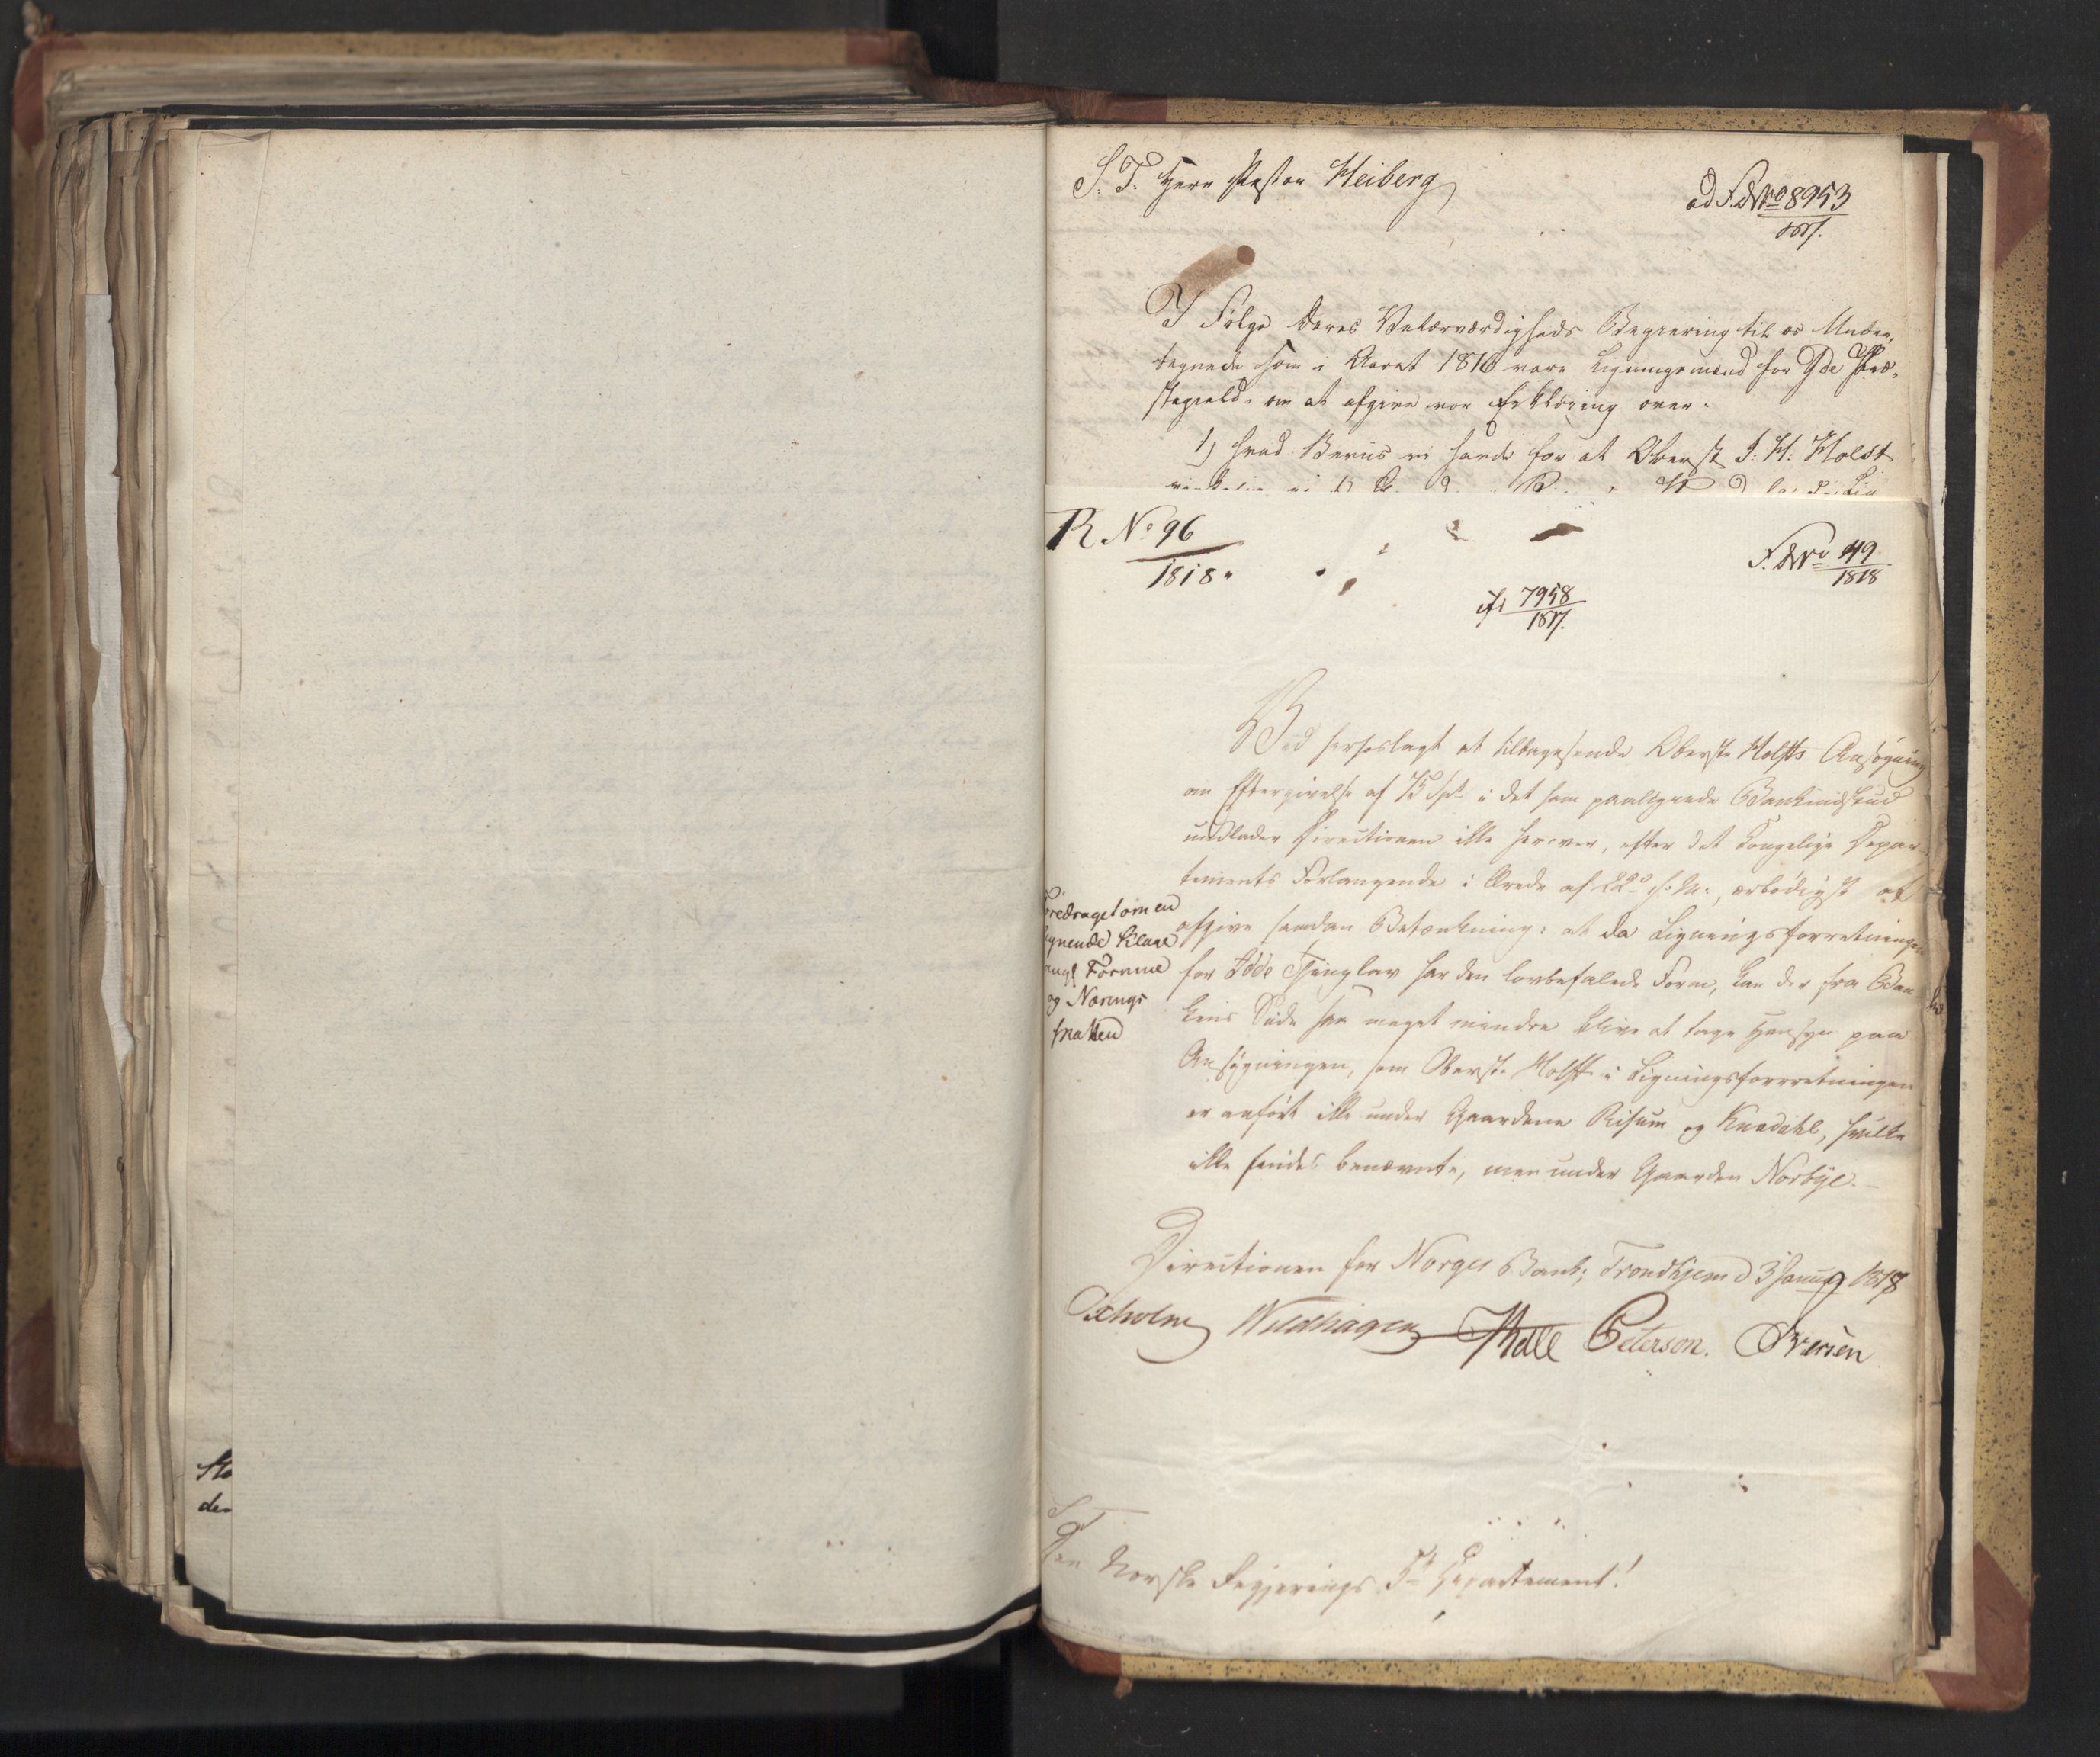 S. T. Herr Pastor Heiberg
ad F. D. No 8953
1817.
I Følge Deres Velærværdigheds Begiering til os Under,
tegnede som i Aaret 1816 vare Ligningsmænd for Idde Præ,
stegield, om at afgive vor Erklæring over:
1) hvad Beviis vi havde for at Oberst J. H. Holst
R No 96
1818.
F. D. No 49
1818
cfr 7958
1817.
Ved hoslagt at tilbagesende Oberste Holsts Ansøgning
om Eftergivelse af 75 Spd i det ham paalignede Bankindskud
undlader Directionen ikke herover, efter det Kongelige Depar
tements Forlangende i Brev af 22de f. M., ærbødigst at
afgive saadan Betænkning: at da Ligningsforretningen
for Idde Thinglav har den lovbefalede Form, kan der fra Ban
kens Side saa meget mindre blive at tage Hensyn paa
Ansøgningen, som Oberst Holst i Ligningsforretningen
er anført ikke under Gaardene Risum og Knardahl, hvilke
ikke findes benævnte, men under Gaarden Norbye.
foredraget om en
lignende Klage
angl Formue
og Nærings
skatten
Directionen for Norges Bank, Trondhjem d 3 Januar 1818
Oxholm Wildhagen Møll Peterson. Iversen
Den Norske Regjerings 5te Departement!
Sto
der